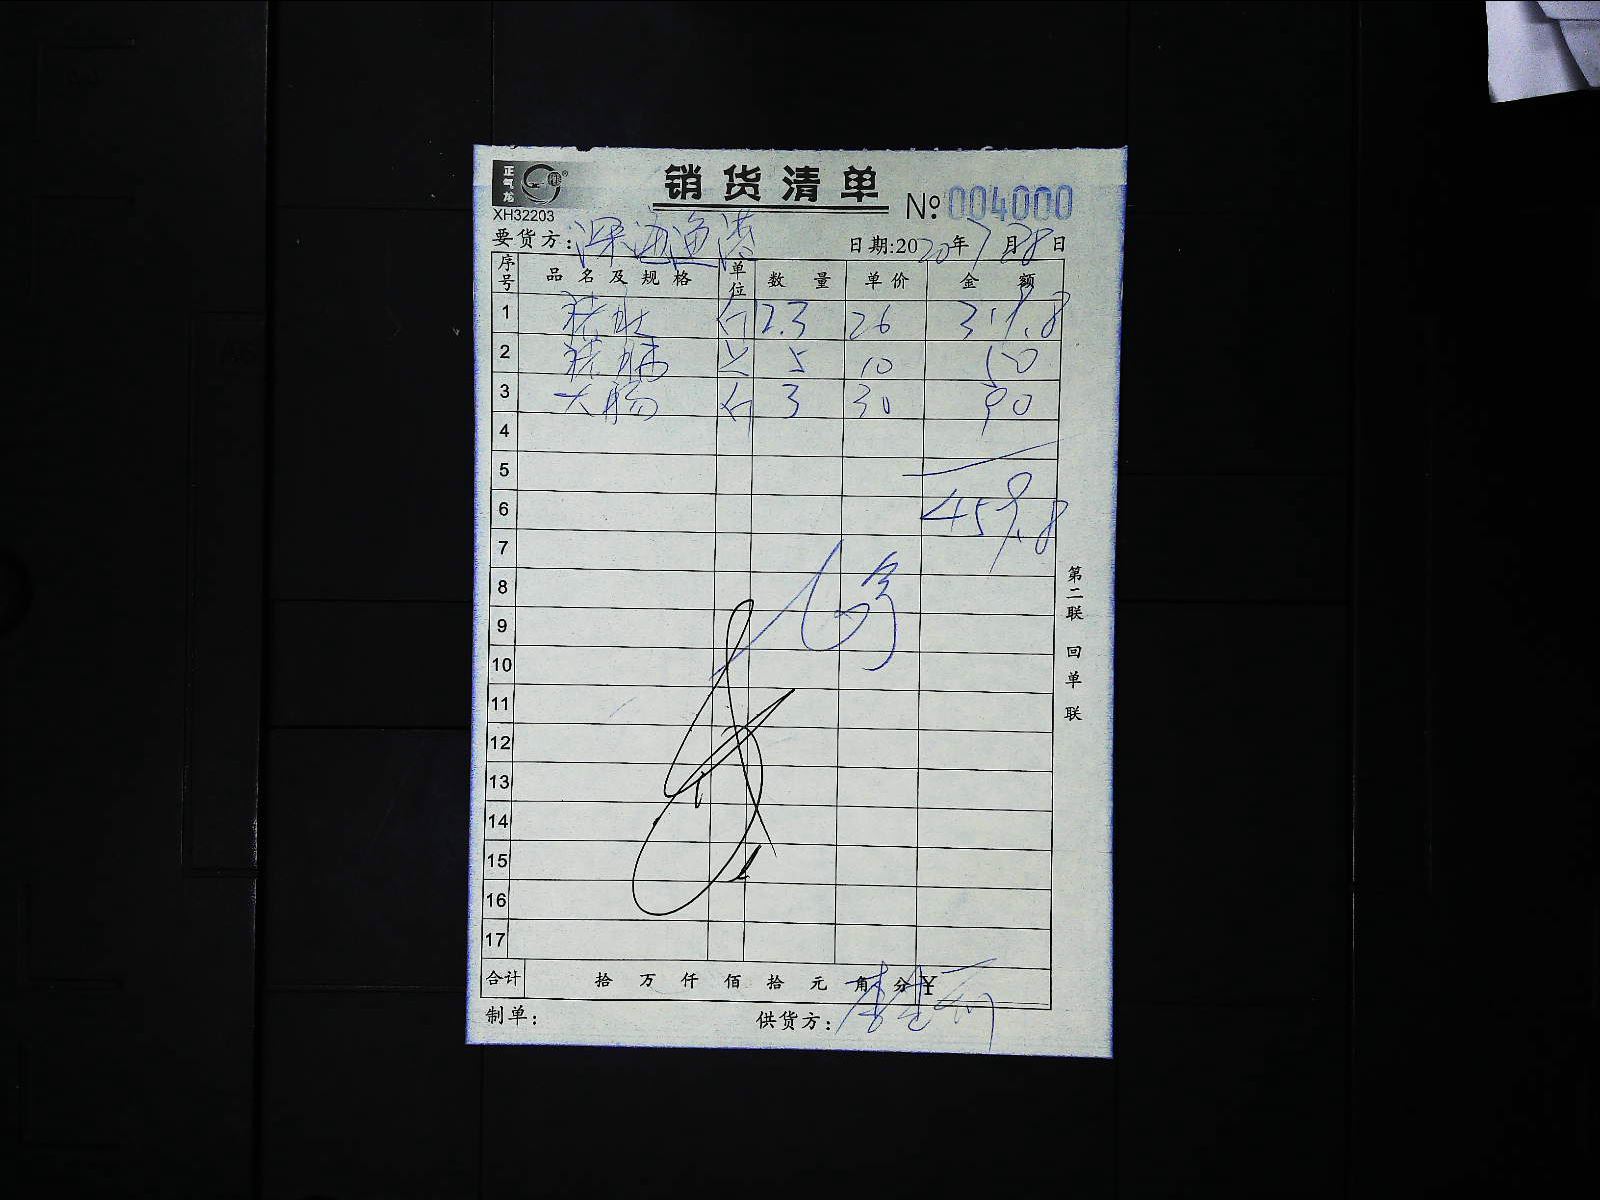 正气龙
销货清单
XH32203
№ 004000
要货方：深海渔港 日期:2020年7月28日
序号 品名及规格 单位 数量 单价 金额
1 猪肚 斤 12.3 26 319.8
2 猪肺 只 5 10 50
3 大肠 斤 3 30 90
4
5
6 459.8
7
8
9
10
11
12
13
14
15
16
17
合计 拾 万 仟 佰 拾 元 角 分 ¥
制单： 供货方：李
第二联 回单联